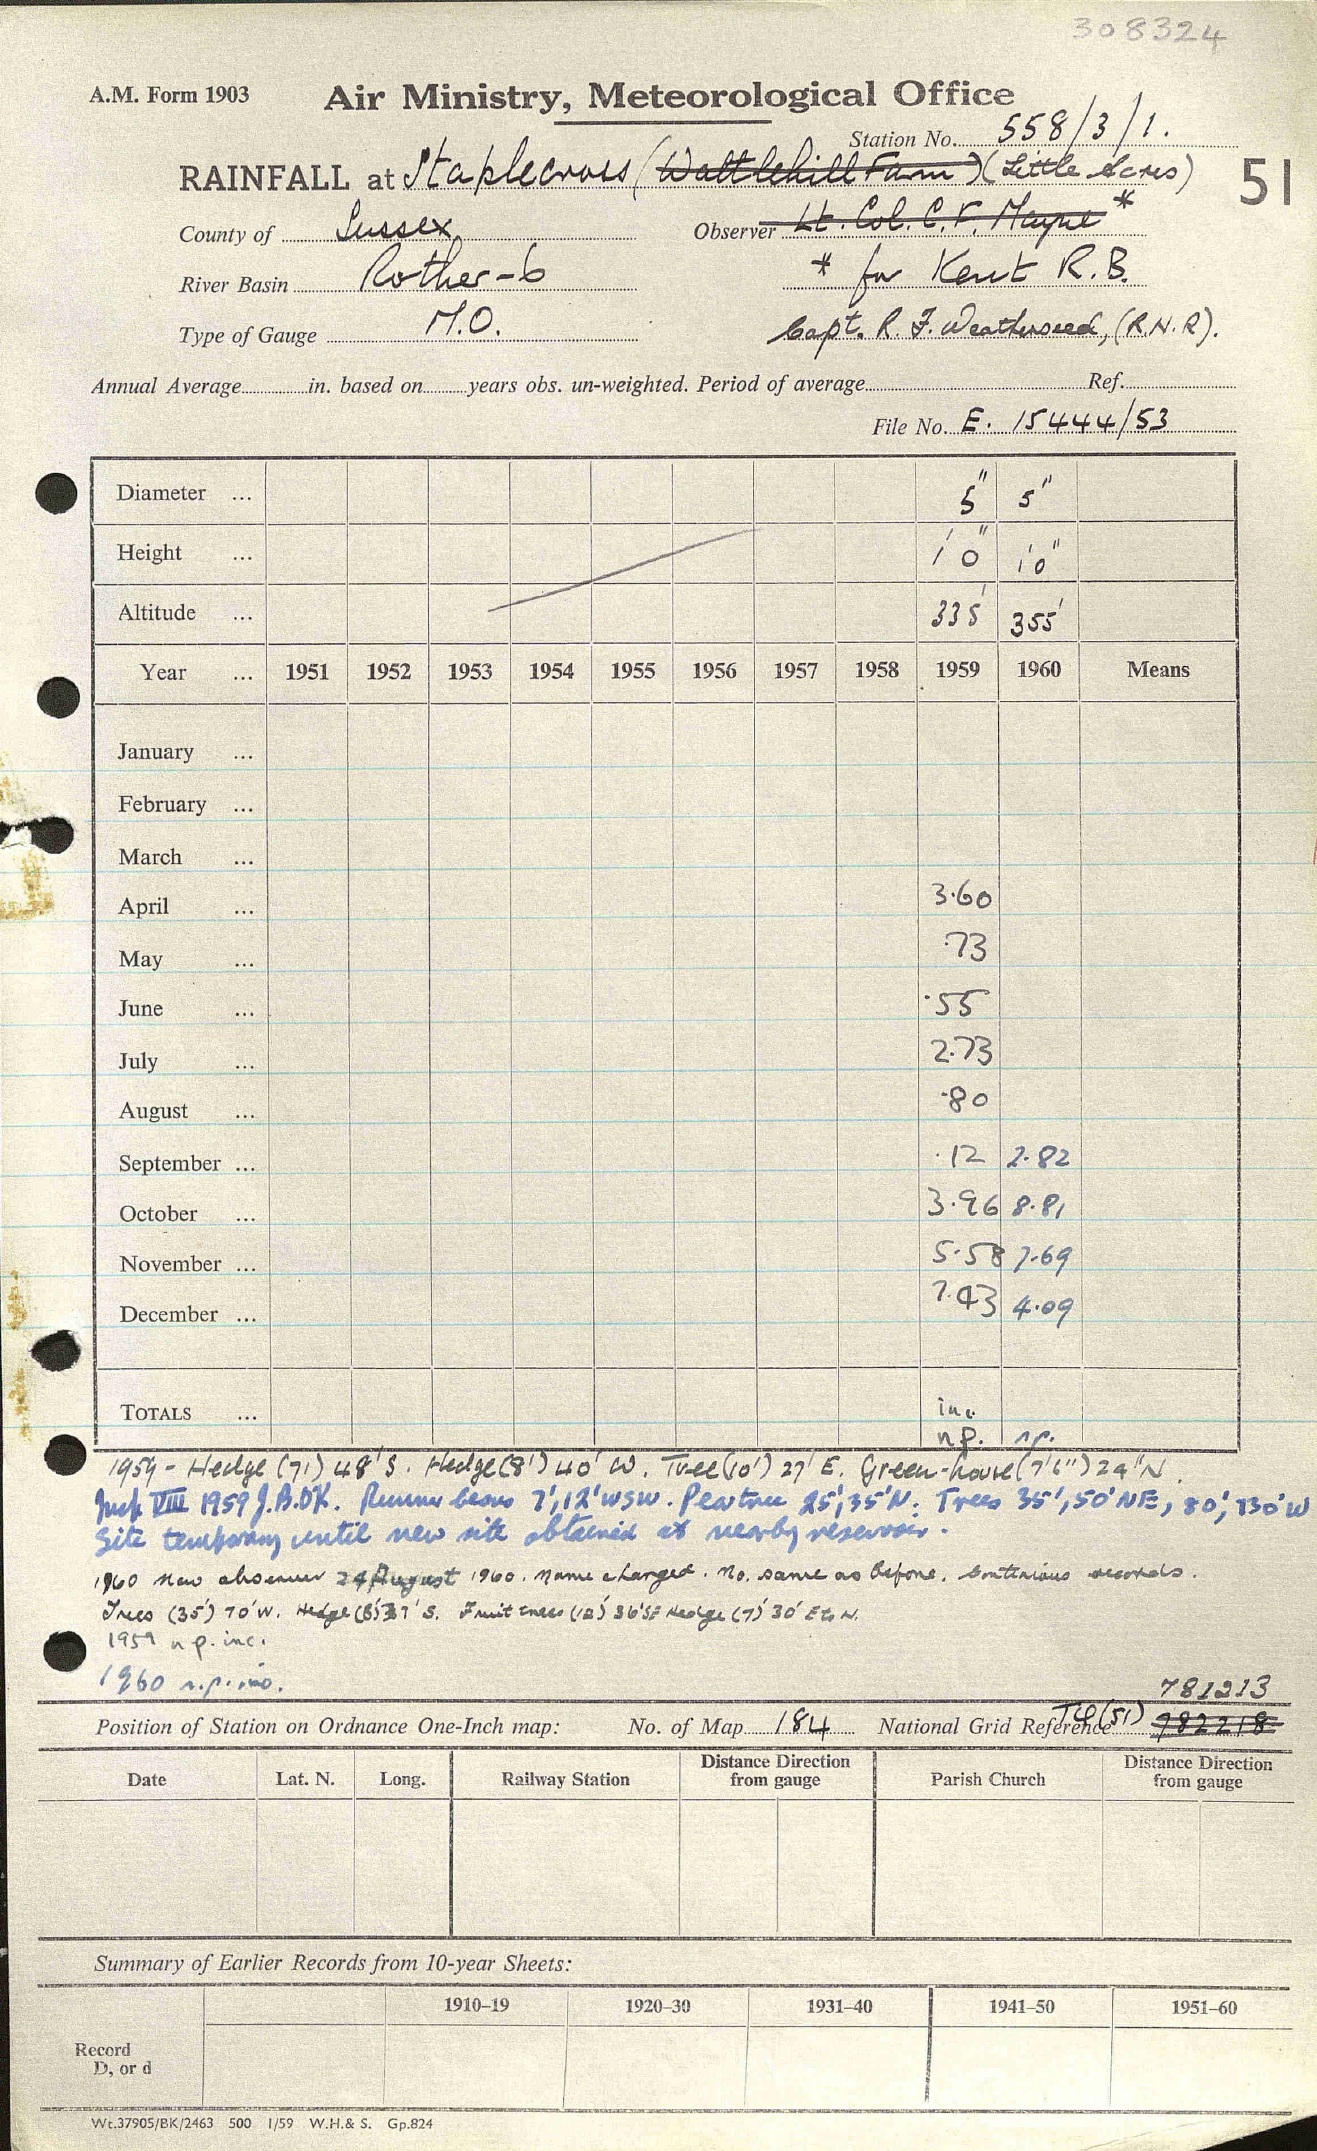 308324
A.M. Form 1903 Air Ministry, Meteorological Office
Station No. 558/3/1.
RAINFALL at Staplecross (Wattlehill Farm) (Little Acres) 51
County of Sussex Observer Lt. Col. C. F. Mayne *
River Basin Rother-6 * for Kent R.B.
Type of Gauge M.O. Capt. R. F. Weatherseed, (R.N.R).
Annual Average in. based on years obs. un-weighted. Period of average Ref.
File No. E. 15444/53
Diameter ... 5" 5"
Height ... 1'0" 1'0"
Altitude ... 335' 355'
Year ... 1951 1952 1953 1954 1955 1956 1957 1958 1959 1960 Means
January ...
February ...
March ...
April ... 3.60
May ... .73
June ... .55
July ... 2.73
August ... .80
September ... .12 2.82
October ... 3.96 8.81
November ... 5.58 7.69
December ... 7.43 4.09
TOTALS ... inc.
n.p. n.p.
1959 - Hedge (7') 48' S. Hedge (8') 40' W. Tree (10') 27' E. Green-house (7'6") 24' N.
Insp VIII 1959 J.B.OK. Runner beans 7', 12' WSW. Peartree 25', 35' N. Trees 35', 50' NE, 80', 130' W
Site temporary until new site obtained at nearby reservoir.
1960 New observer 24 August 1960. Name changed. No. same as before. Continuous records.
Trees (35') 70' W. Hedge (8') 37' S. Fruit trees (12') 36' SE Hedge (7') 30' E to N.
1959 n.p. inc.
1960 n.p. inc.
781213
Position of Station on Ordnance One-Inch map: No. of Map 184 National Grid Reference TQ (51) 982218
Date Lat. N. Long. Railway Station Distance Direction from gauge Parish Church Distance Direction from gauge
Summary of Earlier Records from 10-year Sheets:
1910–19 1920–30 1931–40 1941–50 1951–60
Record
D, or d
Wt.37905/BK/2463 500 1/59 W.H.& S. Gp.824